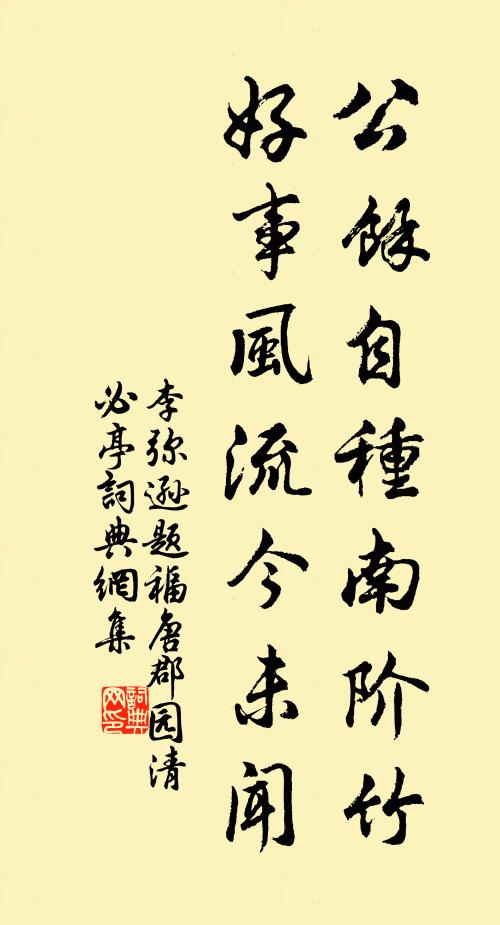 公餘自種南阶竹
好事風流今未闻
李弥遜题福唐郡园清
必亭詞典網集
詞典
网印